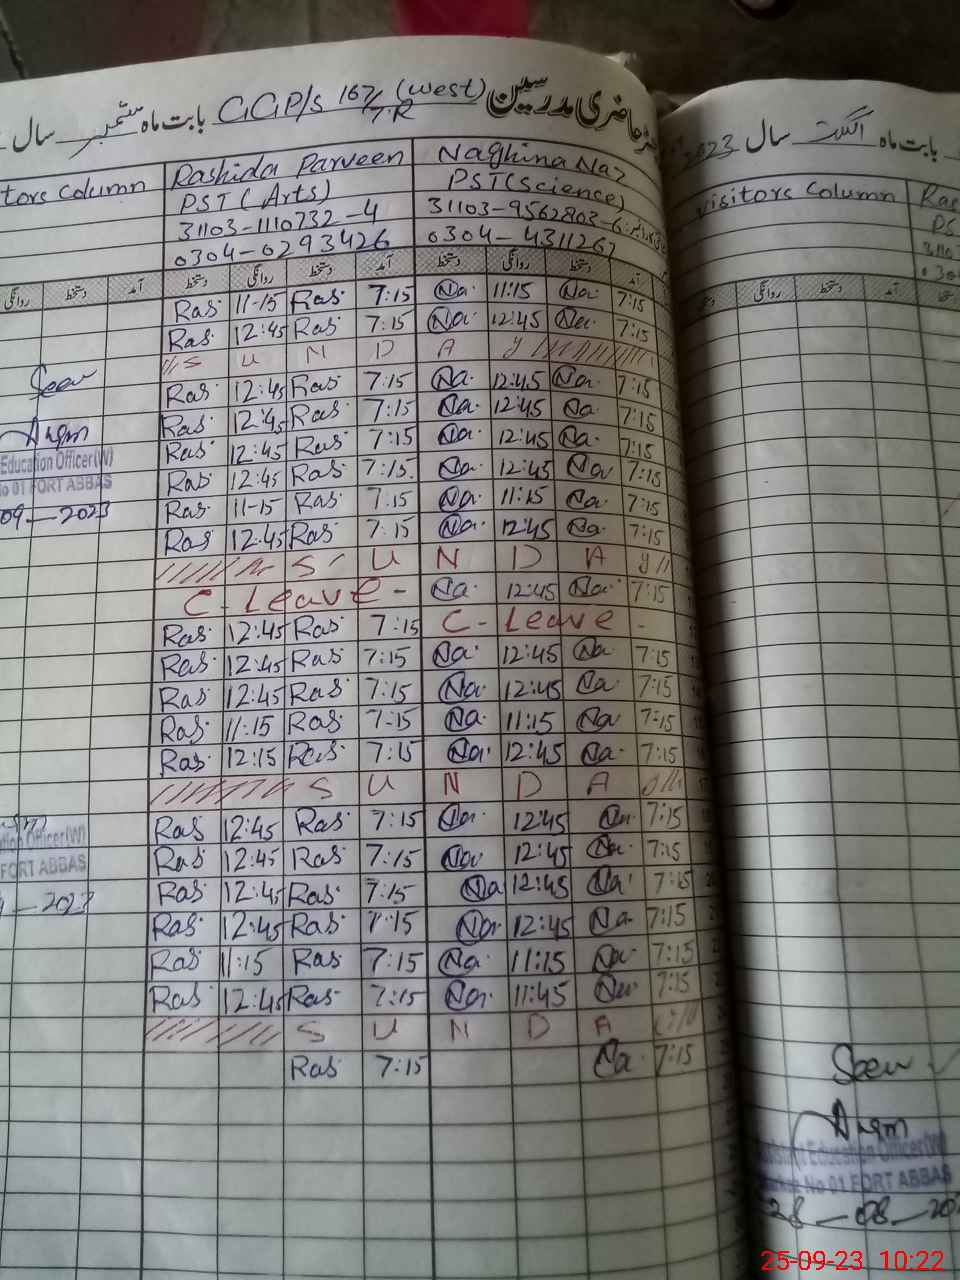 حاضری مدرسین GGP/s 167/7R (west) بابت ماہ ستمبر سال
2023 سال اگست بابت ماہ
tors Column Rashida Parveen Naghina Naz
PST (Arts) PST (Science)
31103-1110732-4 31103-9562803-6
0304-0293426 0304-4311267
visitors Column Ras
روانگی دستخط آمد دستخط روانگی دستخط آمد دستخط روانگی دستخط آمد
روانگی دستخط آمد
Ras 11-15 Ras 7:15 Na 11:15 Na 7:15
Ras 12:45 Ras 7:15 Na 12:45 Na 7:15
S U N D A Y
Seen
Ras 12:45 Ras 7:15 Na 12:45 Na 7:15
Ras 12:45 Ras 7:15 Na 12:45 Na 7:15
Ras 12:45 Ras 7:15 Na 12:45 Na 7:15
Education Officer (W)
Ras 12:45 Ras 7:15 Na 12:45 Na 7:15
No 01 FORT ABBAS
Ras 11-15 Ras 7:15 Na 11:15 Na 7:15
09-2023
Ras 12:45 Ras 7:15 Na 12:45 Na 7:15
S U N D A Y
C - Leave - Na 12:45 Na 7:15
Ras 12:45 Ras 7:15 C - Leave -
Ras 12:45 Ras 7:15 Na 12:45 Na 7:15
Ras 12:45 Ras 7:15 Na 12:45 Na 7:15
Ras 11:15 Ras 7:15 Na 11:15 Na 7:15
Ras 12:15 Ras 7:15 Na 12:45 Na 7:15
S U N D A
Ras 12:45 Ras 7:15 Na 12:45 Na 7:15
Officer (W)
Ras 12:45 Ras 7:15 Na 12:45 Na 7:15
FORT ABBAS
Ras 12:45 Ras 7:15 Na 12:45 Na 7:15
2023
Ras 12:45 Ras 7:15 Na 12:45 Na 7:15
Ras 11:15 Ras 7:15 Na 11:15 Na 7:15
Ras 12:45 Ras 7:15 Na 11:45 Na 7:15
S U N D A
Ras 7:15 Na 7:15
Seen
Education Officer (W)
No 01 FORT ABBAS
28-08-202
25-09-23 10:22